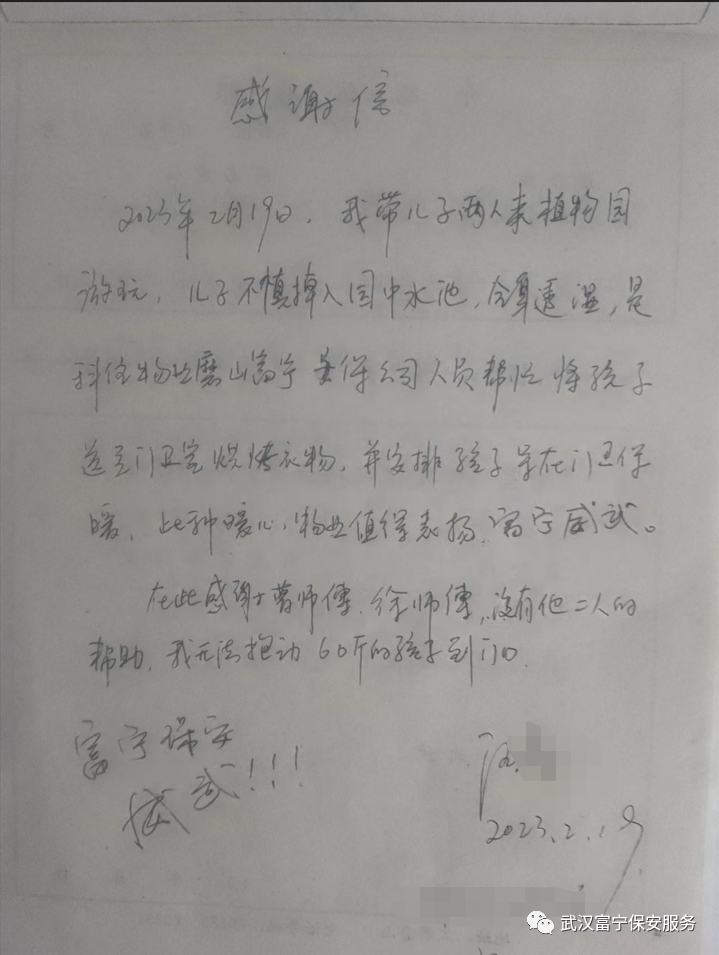 感谢信
2023年2月19日，我带儿子两人来植物园
游玩，儿子不慎掉入园中水池，全身透湿，是
科住物业磨山富宁保公司人员帮忙将孩子
送至门卫室烘烤衣物，并安排孩子坐在门卫保
暖，此种暖心，物业值得表扬，富宁威武。
在此感谢曹师傅，徐师傅，没有他二人的
帮助，我无法抱动60斤的孩子到门口
富宁保安
威武!!!
2023.2.19
武汉富宁保安服务